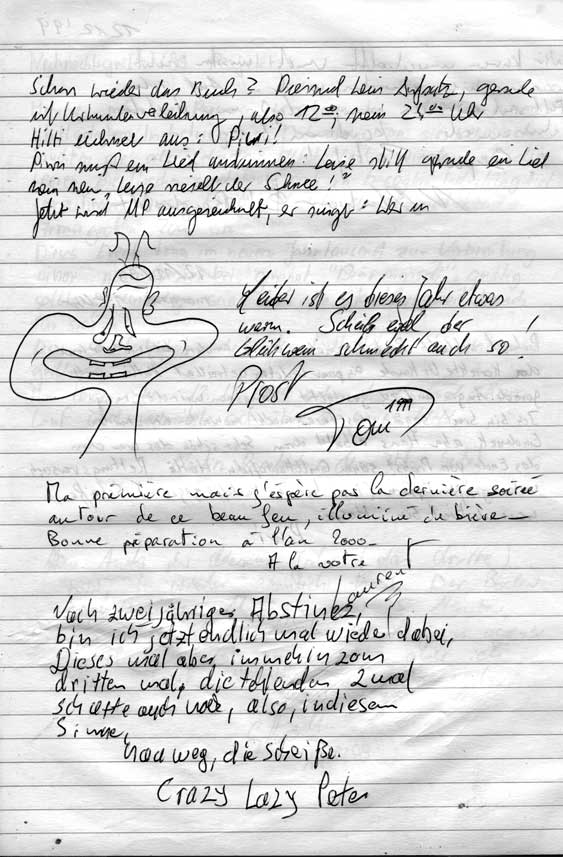 Schon wieder das Buch? Diesmal kein Aufsatz, gerade
ist Urkundenverleihung, also 12°°, nein 24°° Uhr
Hilti zeichnet aus: Piwi!
Piwi muß ein Lied anstimmen: Leise still gerade ein Lied
nein nein, leise rieselt der Schnee!
Jetzt wird MP ausgezeichnet, er singt: Wer
Leider ist es dieses Jahr etwas
warm. Scheiß egal der
Glühwein schmeckt auch so!
Prost
Tom 1999
Ma première mais j'espère pas la dernière soirée
autour de ce beau feu, illuminé de
Bonne préparation à l'an 2000-
A la votre
Laurent
Nach zweijähriger Abstinez,
bin ich jetzt endlich mal wieder dabei,
Dieses mal aber immerhin zum
dritten mal, die 2 mal
auch, also, in diesem
Sinne,
Hau weg, die Scheiße.
Crazy Lazy Peter